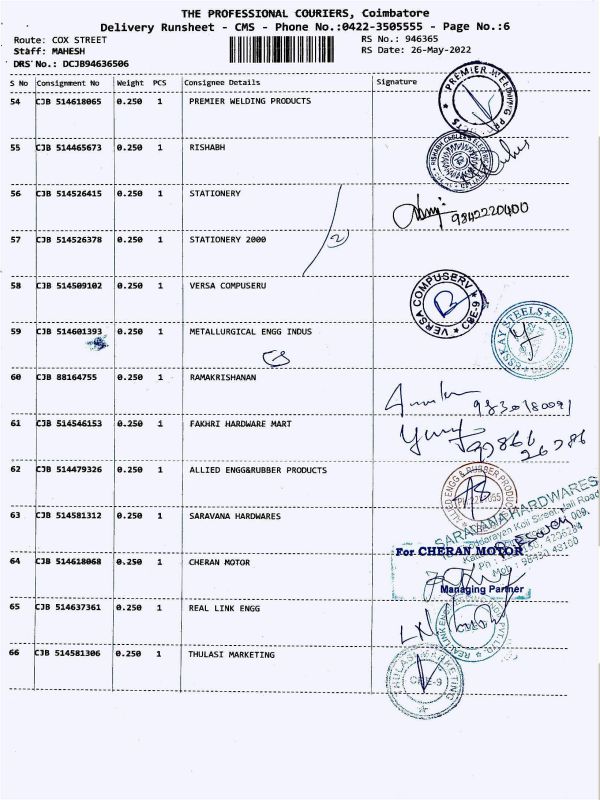 THE PROFESSIONAL COURIERS, Coimbatore
Delivery Runsheet - CMS - Phone No.:0422-3505555 - Page No.:6
Route: COX STREET
RS No.: 946365
Staff: MAHESH
RS Date: 26-May-2022
DRS No.: DCJB94636506
S No Consignment No Weight PCS Consignee Details Signature
54 CJB 514618065 0.250 1 PREMIER WELDING PRODUCTS
PREMIER WELDING
55 CJB 514465673 0.250 1 RISHABH
56 CJB 514526415 0.250 1 STATIONERY
9842220400
57 CJB 514526378 0.250 1 STATIONERY 2000
2
58 CJB 514509102 0.250 1 VERSA COMPUSERU
VERSA COMPUSERV
CBE-9
59 CJB 514601393 0.250 1 METALLURGICAL ENGG INDUS
ESSKAY STEELS
60 CJB 88164755 0.250 1 RAMAKRISHANAN
61 CJB 514546153 0.250 1 FAKHRI HARDWARE MART
62 CJB 514479326 0.250 1 ALLIED ENGG&RUBBER PRODUCTS
ALLIED ENGG & RUBBER PRODUCTS
63 CJB 514581312 0.250 1 SARAVANA HARDWARES
SARAVANA HARDWARES
64 CJB 514618068 0.250 1 CHERAN MOTOR
For CHERAN MOTOR
Managing Partner
65 CJB 514637361 0.250 1 REAL LINK ENGG
66 CJB 514581306 0.250 1 THULASI MARKETING
THULASI MARKETING
CBE-9